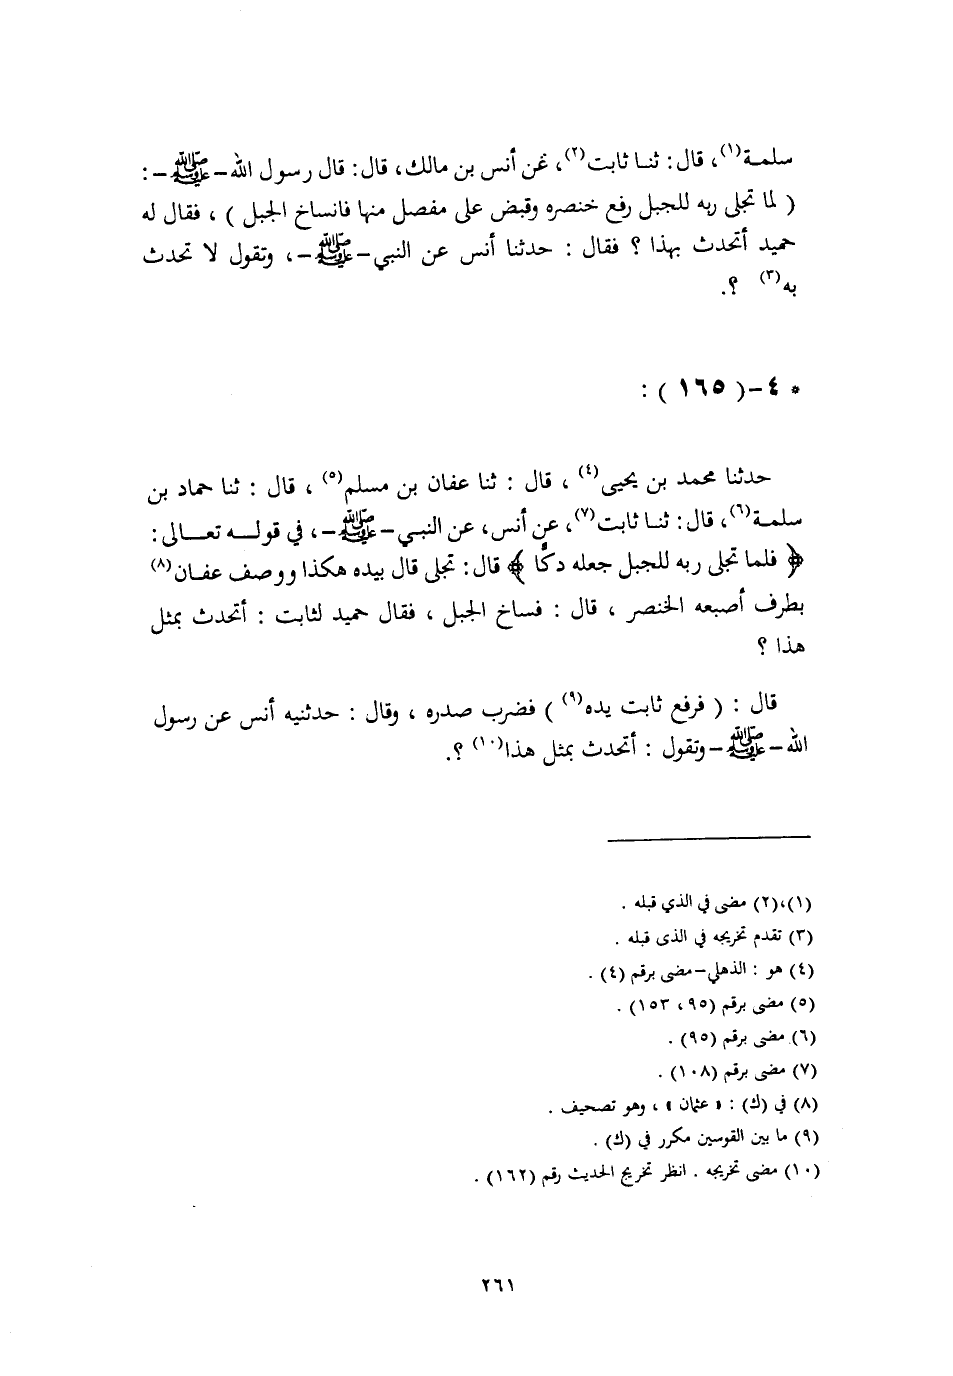 سلمـة(١)، قال: ثنـا ثابت(٢)، عن أنس بن مالك، قال: قال رسول الله–ﷺ–:
( لما تجلى ربه للجبل رفع خنصره وقبض على مفصل منها فانساخ الجبل ) ، فقال له
حميد أتحدث بهذا ؟ فقال : حدثنا أنس عن النبي–ﷺ–، وتقول لا تحدث
به(٣) ؟.
* ٤–( ١٦٥ ) :
حدثنا محمد بن يحيى(٤) ، قال : ثنا عفان بن مسلم(٥) ، قال : ثنا حماد بن
سلمـة(٦)، قال: ثنـا ثابت(٧)، عن أنس، عن النبـي–ﷺ–، في قولـــه تعـــالى:
﴿ فلما تجلى ربه للجبل جعله دكًّا ﴾ قال: تجلى قال بيده هكذا ووصف عفـان(٨)
بطرف أصبعه الخنصر ، قال : فساخ الجبل ، فقال حميد لثابت : أتحدث بمثل
هذا ؟
قال : ( فرفع ثابت يده(٩) ) فضرب صدره ، وقال : حدثنيه أنس عن رسول
الله–ﷺ–وتقول : أتحدث بمثل هذا(١٠) ؟.
(١)،(٢) مضى في الذي قبله .
(٣) تقدم تخريجه في الذى قبله .
(٤) هو : الذهلي–مضى برقم (٤) .
(٥) مضى برقم (٩٥، ١٥٣) .
(٦) مضى برقم (٩٥) .
(٧) مضى برقم (١٠٨) .
(٨) في (ك) : « عثمان » ، وهو تصحيف .
(٩) ما بين القوسين مكرر في (ك) .
(١٠) مضى تخريجه . انظر تخريج الحديث رقم (١٦٢) .
٢٦١